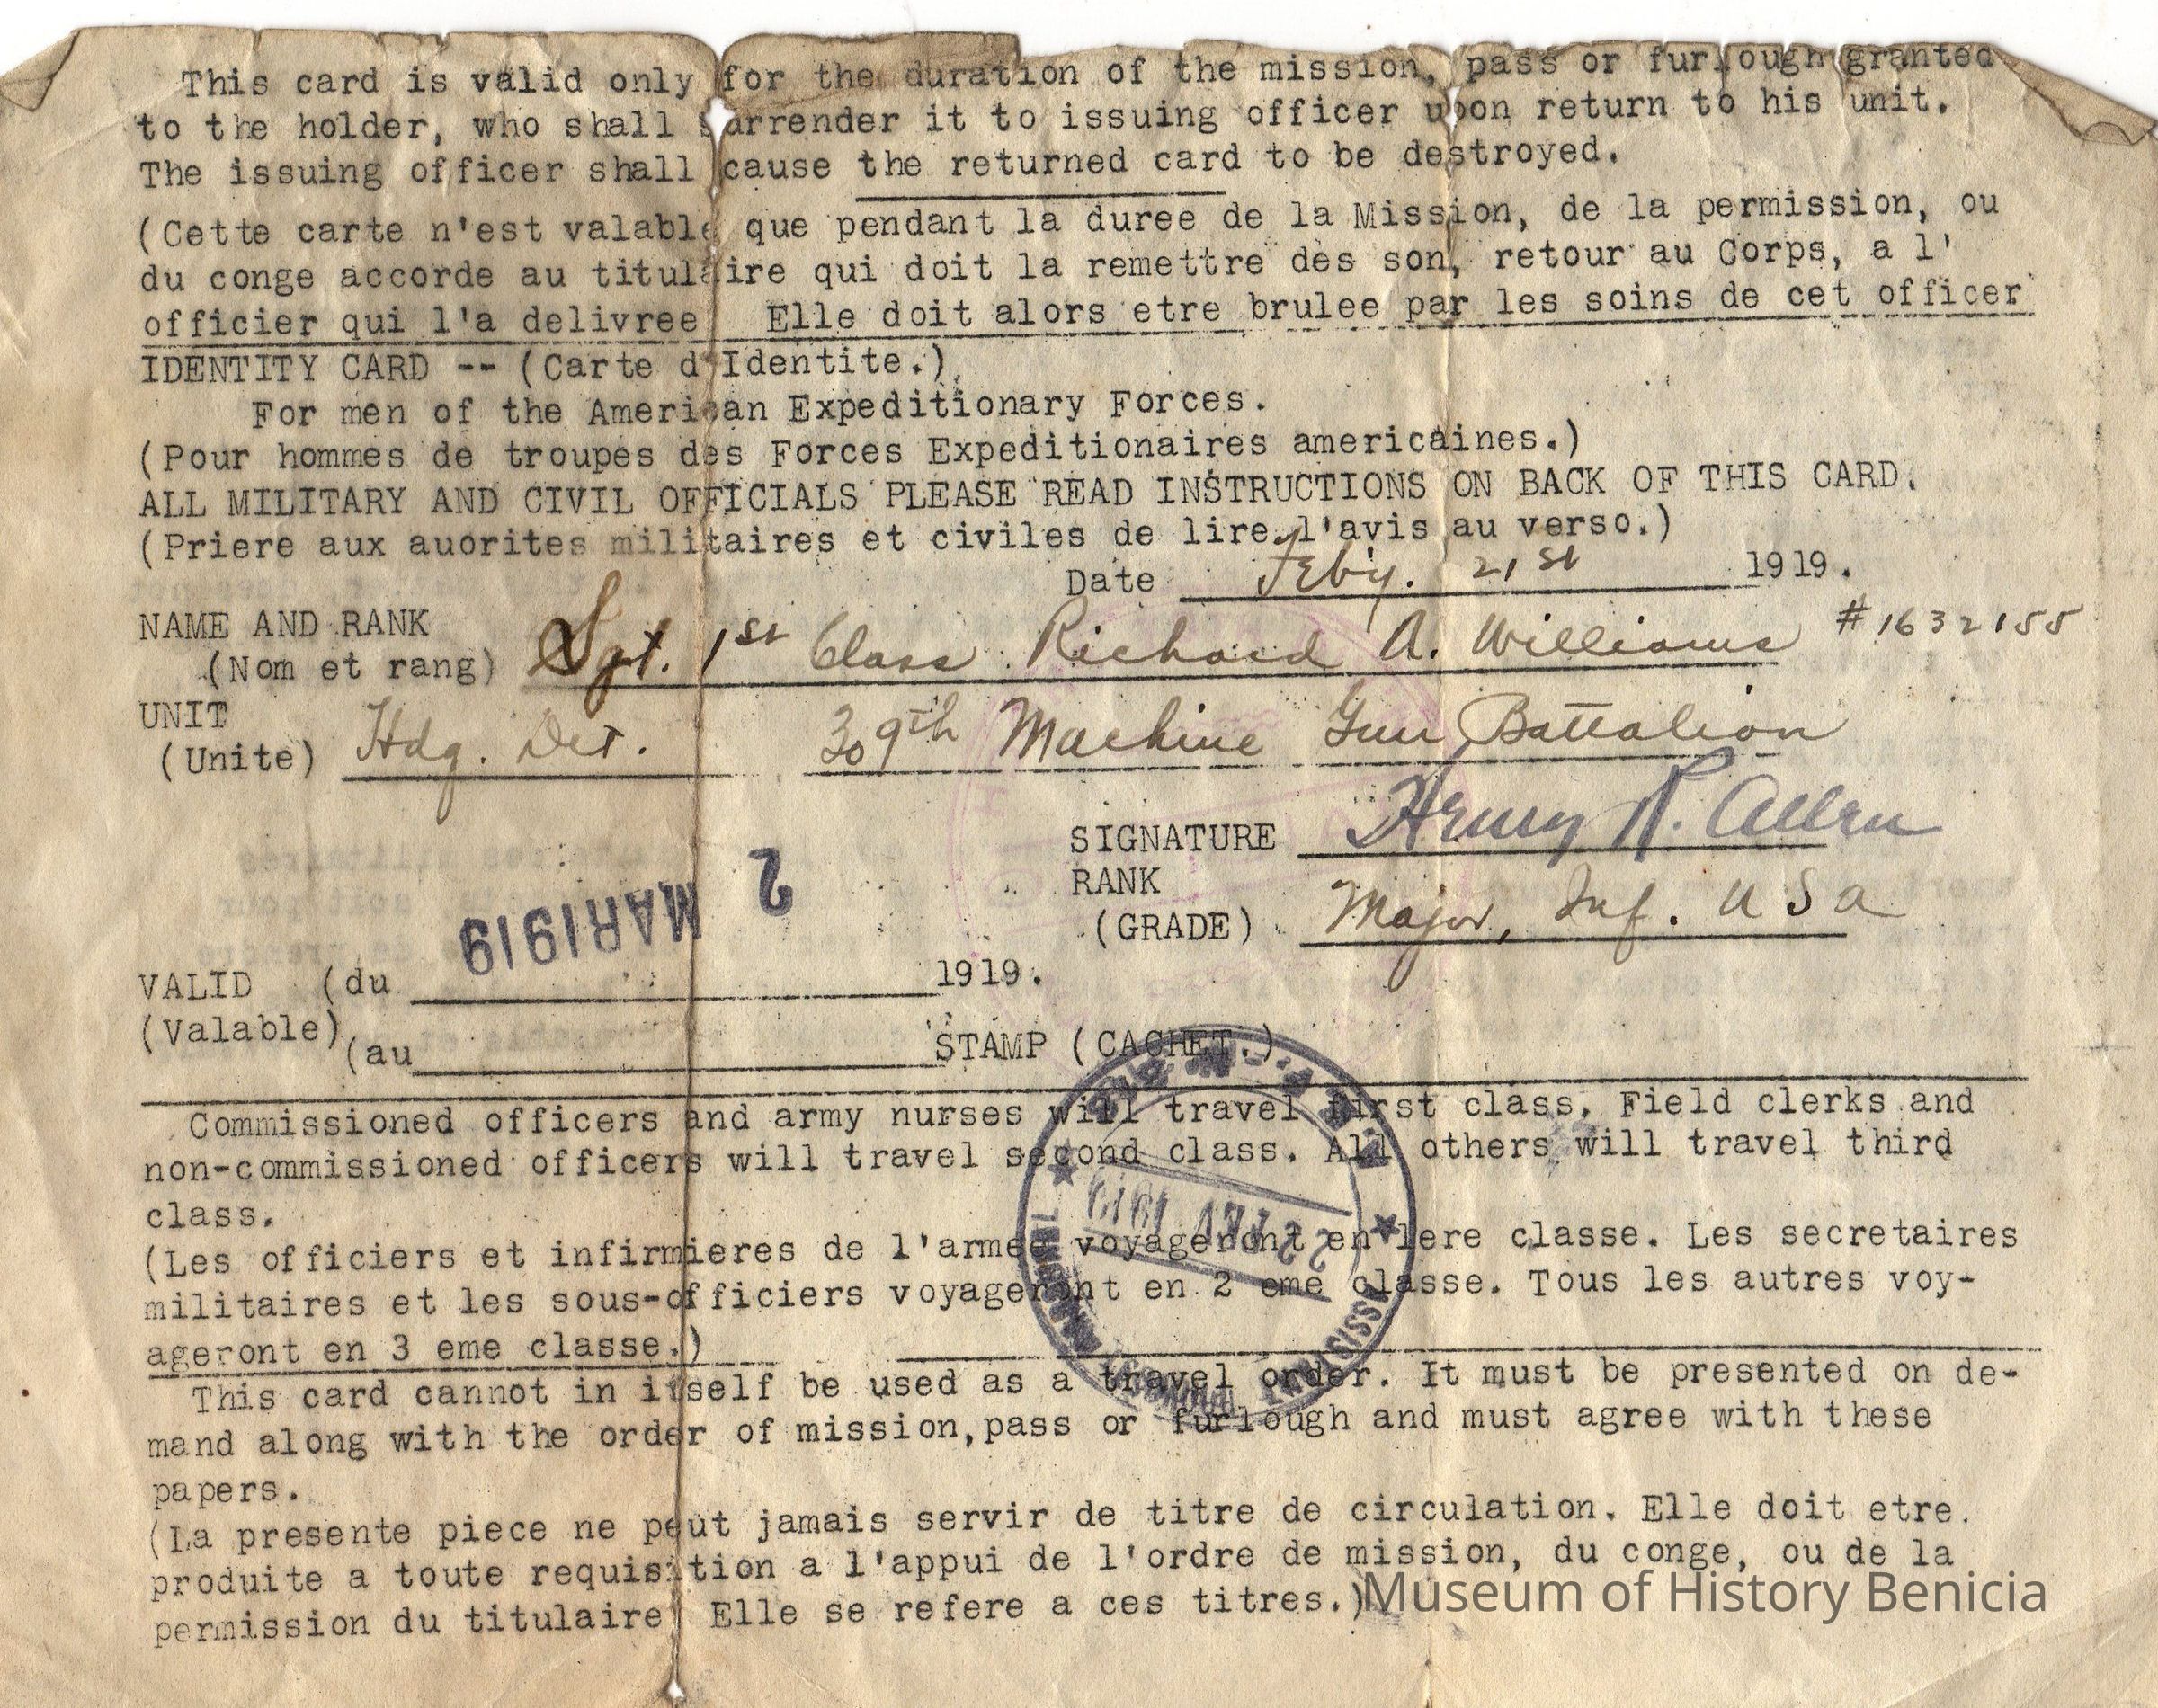 This card is valid only for the duration of the mission, pass or furlough granted
to the holder, who shall surrender it to issuing officer upon return to his unit.
The issuing officer shall cause the returned card to be destroyed.
(Cette carte n'est valable que pendant la duree de la Mission, de la permission, ou
du conge accorde au titulaire qui doit la remettre des son, retour au Corps, a l'
officier qui l'a delivree Elle doit alors etre brulee par les soins de cet officer
IDENTITY CARD -- (Carte d'Identite.)
For men of the American Expeditionary Forces.
(Pour hommes de troupes des Forces Expeditionaires americaines.)
ALL MILITARY AND CIVIL OFFICIALS PLEASE READ INSTRUCTIONS ON BACK OF THIS CARD.
(Priere aux auorites militaires et civiles de lire l'avis au verso.)
Date Feby. 21st 1919.
NAME AND RANK Sgt. 1st Class Richard A. Williams #1632155
(Nom et rang)
UNIT Hdq. Det. 309th Machine Gun Battalion
(Unite)
SIGNATURE Henry R. Allen
RANK Major, Inf. USA
(GRADE)
2 MAR 1919
VALID (du 1919.
(Valable)
(au STAMP (CACHET.)
Commissioned officers and army nurses will travel first class, Field clerks and
non-commissioned officers will travel second class. All others will travel third
class.
(Les officiers et infirmieres de l'armee voyageront en 1ere classe. Les secretaires
militaires et les sous-officiers voyageront en 2 eme classe. Tous les autres voy-
ageront en 3 eme classe.)
22 FEV 1919
This card cannot in itself be used as a travel order. It must be presented on de-
mand along with the order of mission,pass or furlough and must agree with these
papers.
(La presente piece ne peut jamais servir de titre de circulation. Elle doit etre.
produite a toute requisition a l'appui de l'ordre de mission, du conge, ou de la
permission du titulaire Elle se refere a ces titres.)
Museum of History Benicia